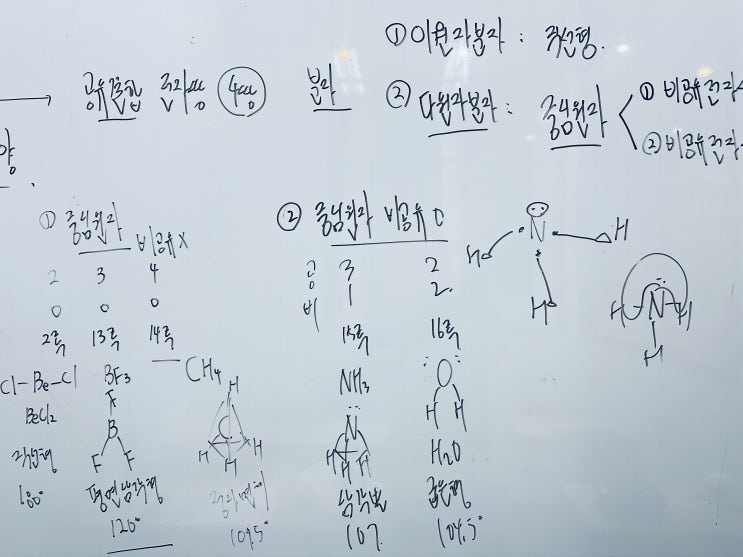 ① 이원자분자 : 직선형.
공유결합 중심 4쌍 분자
② 다원자분자 : 중심원자
① 비공유전자
② 비공유전자
양
① 중심원자 비공유 X
2 3 4
0 0 0
2족 13족 14족
Cl-Be-Cl BF₃ CH₄
BeCl₂
F
B
F F
H
C
H H H
직선형 평면삼각형 정사면체
180° 120° 109.5°
② 중심원자 비공유 O
공 3 2
비 1 2
15족 16족
NH₃
N
H H H
O
H H
H₂O
삼각뿔 굽은형
107 104.5°
N
H H
H
H N H
H